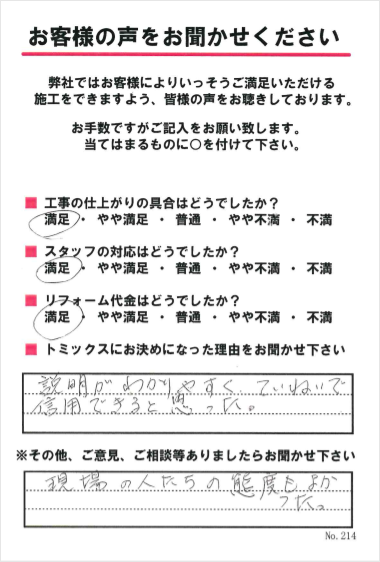 お客様の声をお聞かせください
弊社ではお客様によりいっそうご満足いただける
施工をできますよう、皆様の声をお聴きしております。
お手数ですがご記入をお願い致します。
当てはまるものに○を付けて下さい。
■ 工事の仕上がりの具合はどうでしたか？
満足 ・ やや満足 ・ 普通 ・ やや不満 ・ 不満
■ スタッフの対応はどうでしたか？
満足 ・ やや満足 ・ 普通 ・ やや不満 ・ 不満
■ リフォーム代金はどうでしたか？
満足 ・ やや満足 ・ 普通 ・ やや不満 ・ 不満
■ トミックスにお決めになった理由をお聞かせ下さい
説明がわかりやすく、ていねいで
信用できると思った。
※その他、ご意見、ご相談等ありましたらお聞かせ下さい
現場の人たちの態度もよか
った。
No. 214